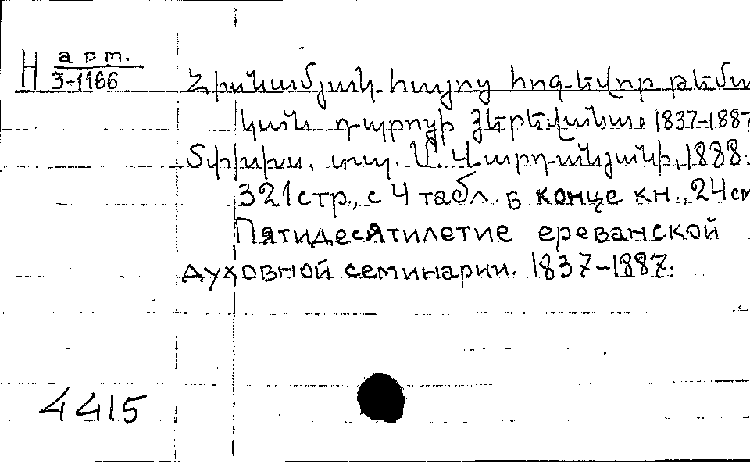 Н арм.
3-1166
Հիսնամյակ հայոց հոգևոր թեմա
կան դպրոցի Երևանա. 1837-1887
Տփխիս, տպ. Մ. Վարդանյանի, 1888.
321 стр., с 4 табл. в конце кн., 24см
Пятидесятилетие ереванской
духовной семинарии. 1837-1887.
4415